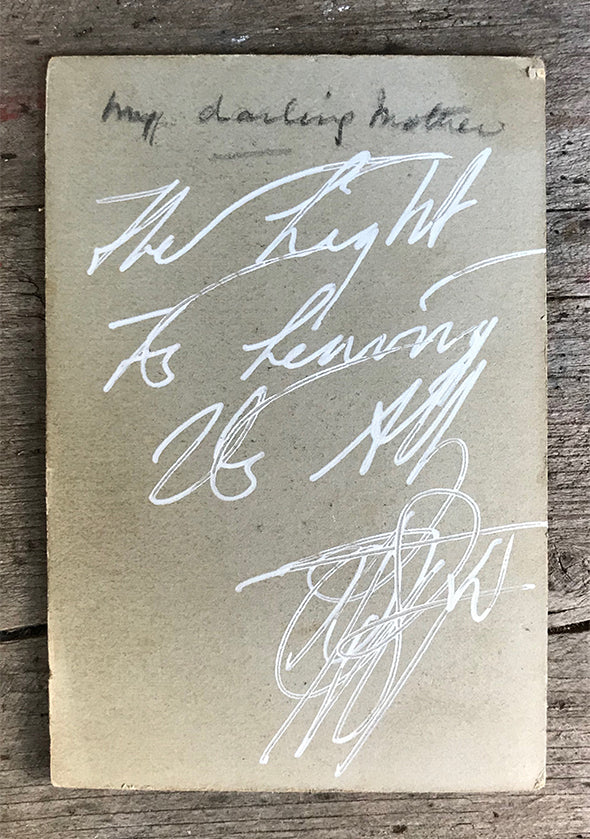 My darling Mother
The Light
Is Leaving
Us All